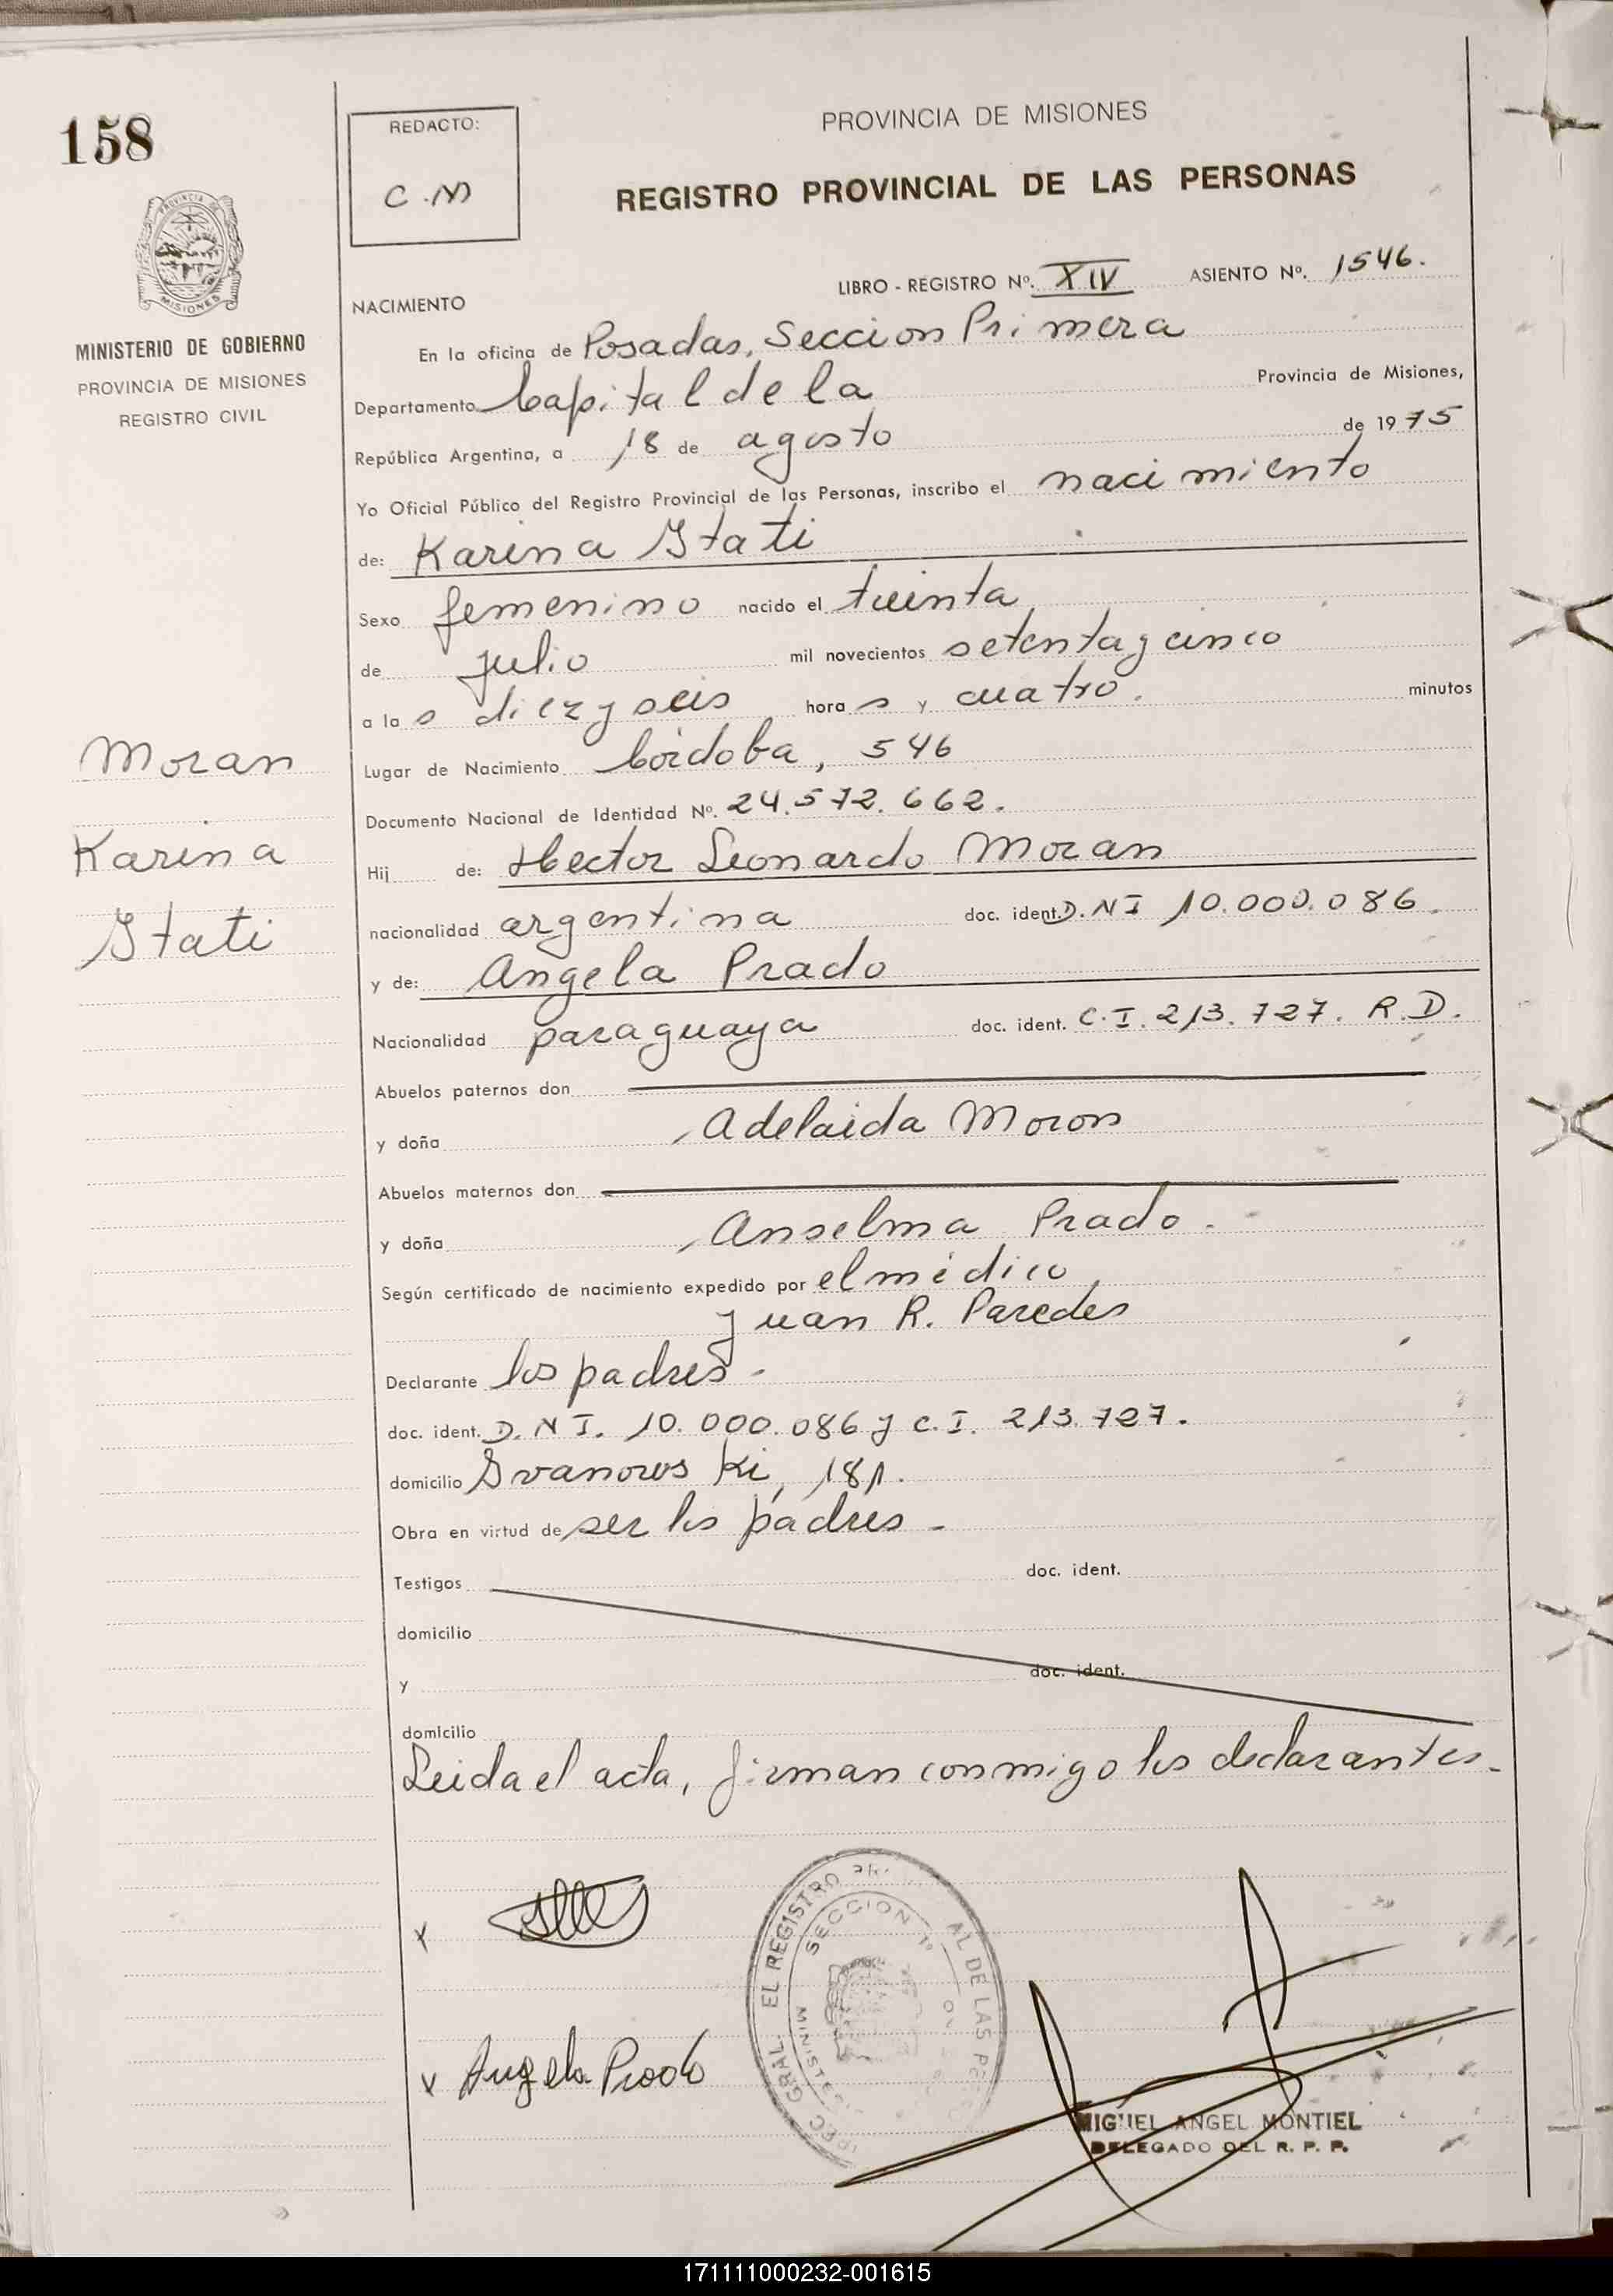 158
REDACTO:
C.M
PROVINCIA DE MISIONES
REGISTRO PROVINCIAL DE LAS PERSONAS
PROVINCIA DE
MISIONES
MINISTERIO DE GOBIERNO
PROVINCIA DE MISIONES
REGISTRO CIVIL
LIBRO - REGISTRO Nº. XIV ASIENTO Nº. 1546.
NACIMIENTO
En la oficina de Posadas, Seccion Primera
Departamento Capital de la Provincia de Misiones,
República Argentina, a 18 de agosto de 1975
Yo Oficial Público del Registro Provincial de las Personas, inscribo el nacimiento
de: Karina Itati
Sexo femenino nacido el treinta
de julio mil novecientos setenta y cinco
a la s diez y seis hora s y cuatro. minutos
Lugar de Nacimiento Córdoba, 546
Documento Nacional de Identidad Nº. 24.572.662.
Hij de: Hector Leonardo Moran
nacionalidad argentina doc. ident. D.NI 10.000.086.
y de: Angela Prado
Nacionalidad paraguaya doc. ident. C.I. 213.727. R.D.
Abuelos paternos don
y doña Adelaida Moron
Abuelos maternos don
y doña Anselma Prado.
Según certificado de nacimiento expedido por el médico,
Juan R. Paredes
Declarante los padres -
doc. ident. D.NI. 10.000.086 y C.I. 213.727.
domicilio Ivanowski, 181.
Obra en virtud de ser los padres -
Testigos doc. ident.
domicilio
y doc. ident.
domicilio
Leida el acta, firman conmigo los declarantes.
Moran
Karina
Itati
x
x Angela Prado
GRAL. EL REGISTRO AL DE LAS
SECCION 1ª
MIGUEL ANGEL MONTIEL
DELEGADO DEL R. P. P.
171111000232-001615